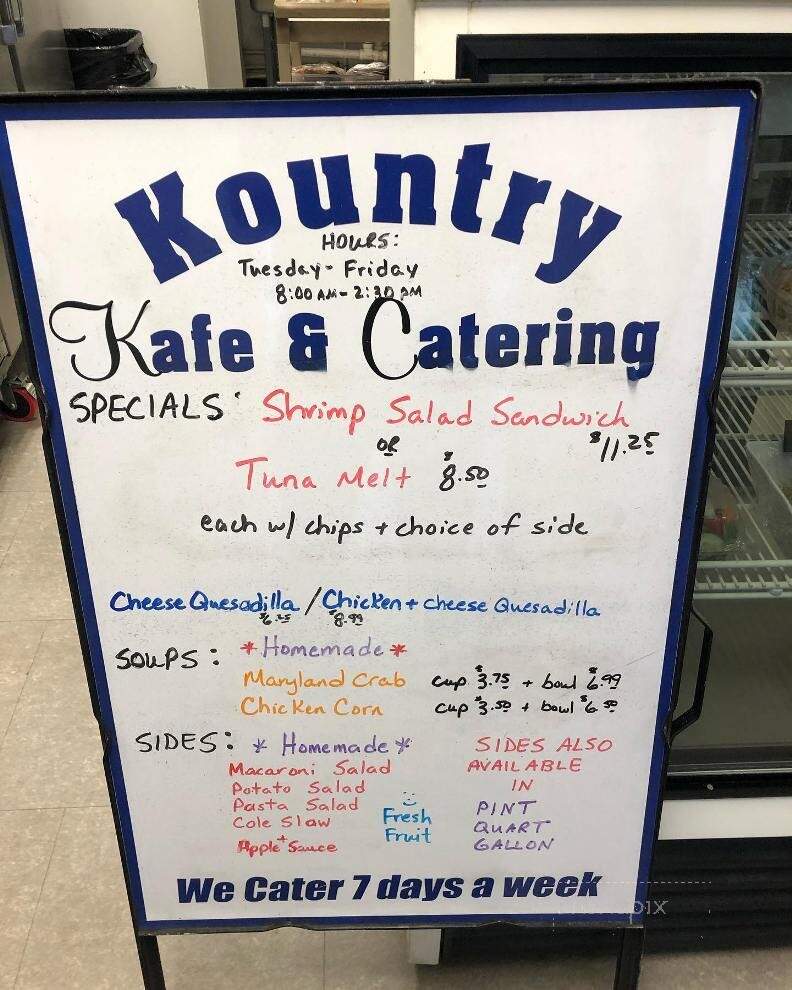 Kountry
HOURS:
Tuesday - Friday
8:00 AM - 2:30 PM
Kafe & Catering
SPECIALS: Shrimp Salad Sandwich
OR $11.25
Tuna Melt $8.50
each w/ chips + choice of side
Cheese Quesadilla / Chicken + cheese Quesadilla
$8.99
SOUPS: * Homemade *
Maryland Crab cup $3.75 + bowl $6.99
Chicken Corn cup $3.50 + bowl $6.50
SIDES: * Homemade * SIDES ALSO
Macaroni Salad AVAILABLE
Potato Salad IN
Pasta Salad PINT
Cole Slaw Fresh QUART
Apple Sauce Fruit GALLON
We Cater 7 days a week